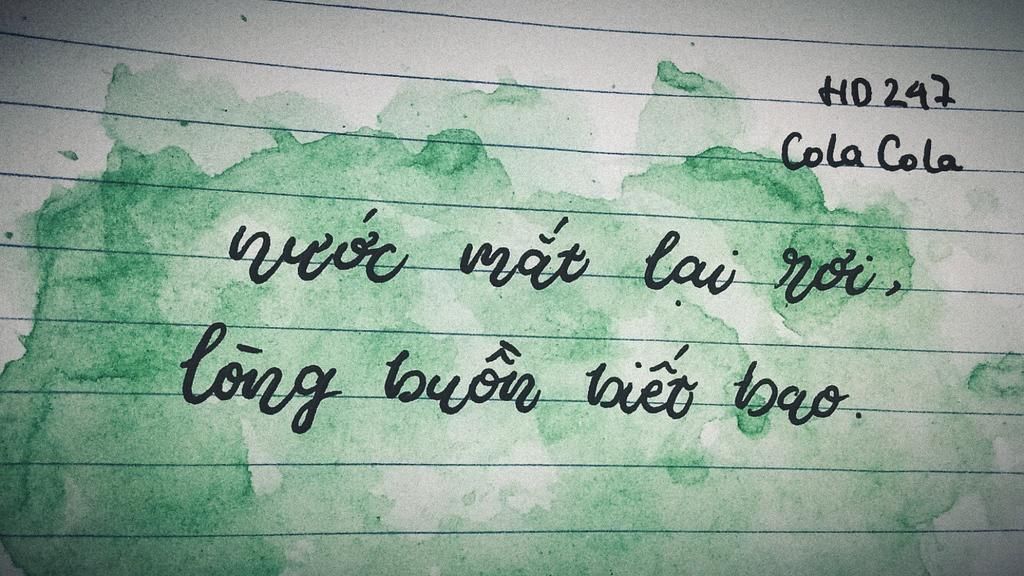 HD 247
Cola Cola
nước mắt lại rơi,
lòng buồn biết bao.